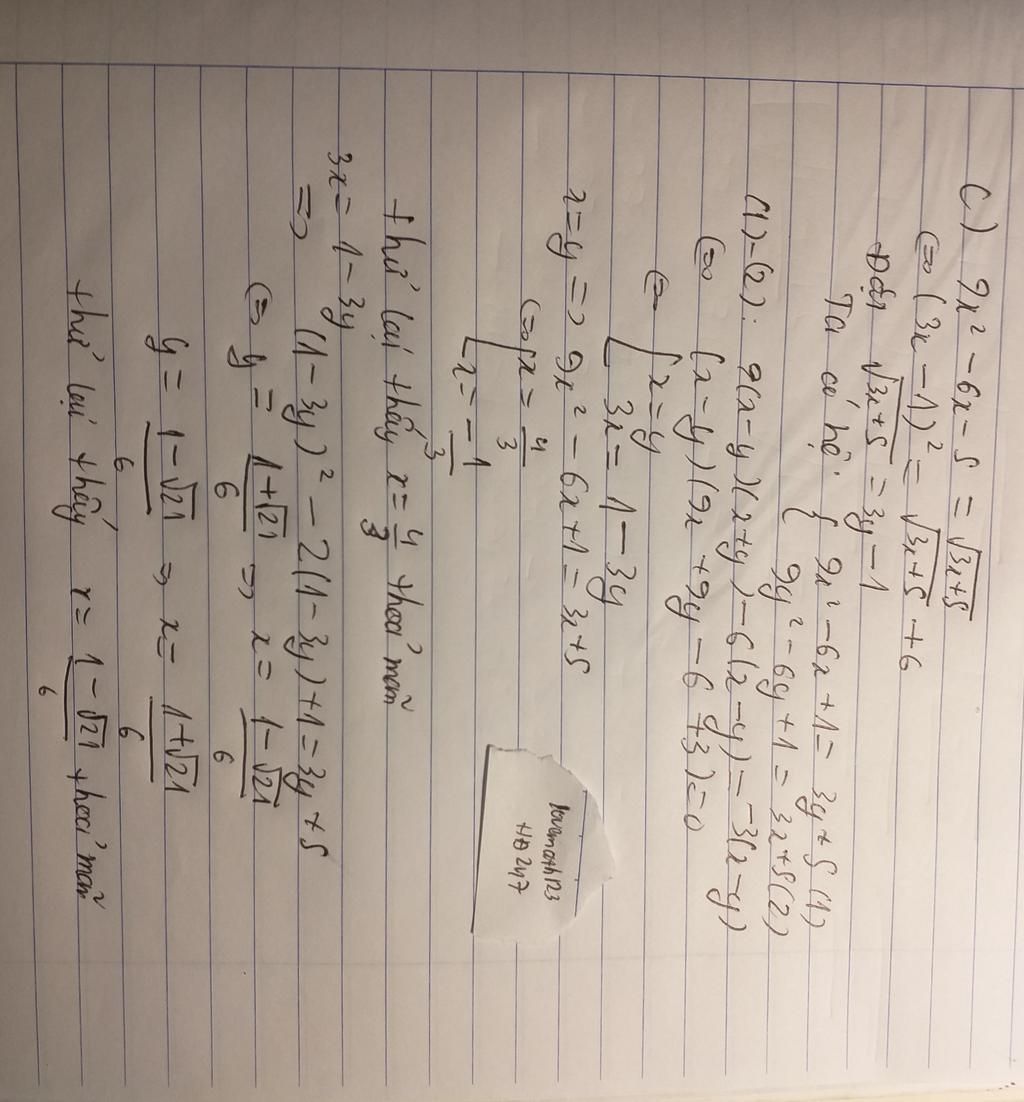 c) 9x² - 6x - 5 = √(3x+5)
⇔ (3x - 1)² = √(3x+5) + 6
Đặt √(3x+5) = 3y - 1
Ta có hệ: { 9x² - 6x + 1 = 3y + 5 (1)
{ 9y² - 6y + 1 = 3x + 5 (2)
(1) - (2): 9(x-y)(x+y) - 6(x-y) = -3(x-y)
⇔ (x-y)(9x + 9y - 6 + 3) = 0
⇔ [ x = y
[ 3x = 1 - 3y
x = y ⇒ 9x² - 6x + 1 = 3x + 5
⇔ [ x = 4/3
[ x = -1/3
thử lại thấy x = 4/3 thoả mãn
3x = 1 - 3y
⇒ (1 - 3y)² - 2(1 - 3y) + 1 = 3y + 5
⇔ y = (1+√21)/6 ⇒ x = (1-√21)/6
y = (1-√21)/6 ⇒ x = (1+√21)/6
thử lại thấy x = (1-√21)/6 thoả mãn
lovemath123
HĐ 247